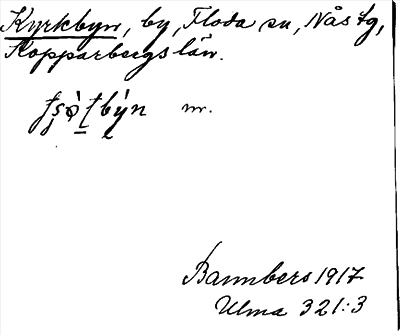 Kyrkbyn, by, Floda sn, Nås tg,
Kopparbergs län.
nr.
Bannbers 1917
Ulma 321:3